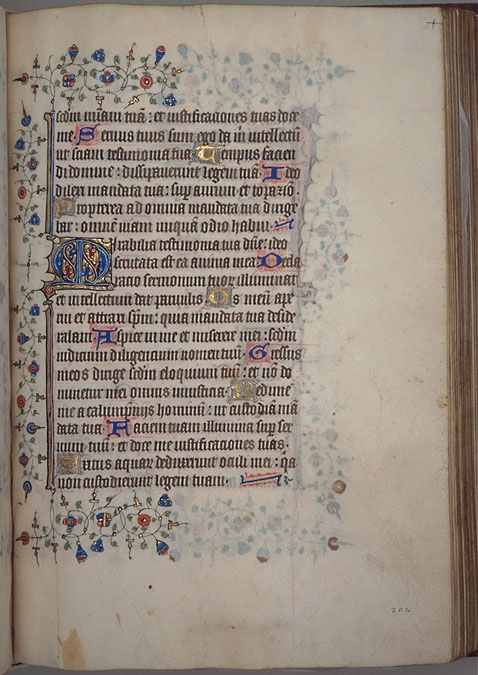 scdm miam tuā: et iustificaciones tuas doce
me. Seruus tuus sum ego da m̄ intellectū
ut sciam testimonia tua. Tempus facien
di domine: dissipauerunt legem tuā. Ideo
dilexi mandata tua: sup̄ aurum et topazio.
Propterea ad omnia mandata tua dirige
bar: omnē uiam iniquā odio habui.
Mirabilia testimonia tua dn̄e: ideo
scrutata est ea anima mea. Decla
racio sermonum tuor illuminat
et intellectum dat paruulis. Os meū ape
rui et attraxi sp̄m: quia mandata tua deside
rabam. Aspice in me et miserere mei: scdm̄
iudicium diligencium nomen tuū. Gressus
meos dirige scdm̄ eloquium tuū: et nō do
minetur mei omnis iniusticia. Redime
me a calumpnijs hominū: ut custodiā mā
data tua. Faciem tuam illumina sup̄ ser
uum tuū: et doce me iustificaciones tuas.
Exitus aquar deduxerunt oculi mei: q̄a
non custodierunt legem tuam.
202